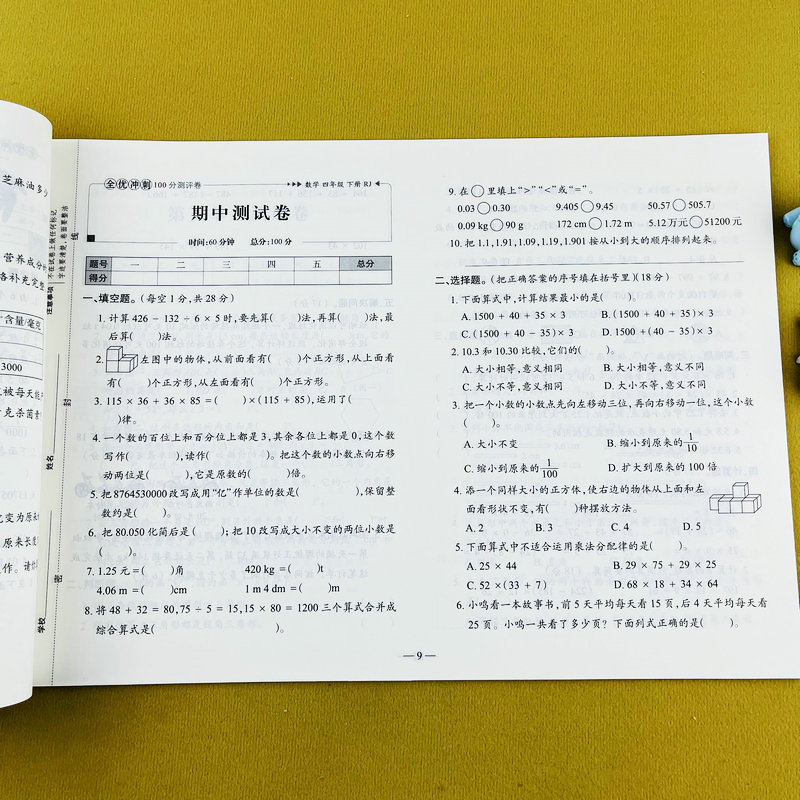 芝麻油多少
营养成分
含量/毫克
3000
注意事项
不在试卷上做任何标记
字迹要清楚,卷面要整洁
姓名
学校
线
封
密
全优冲刺100分测评卷
▸▸▸数学 四年级 下册 RJ◂
期中测试卷
时间:60分钟 总分:100分
题号 一 二 三 四 五 总分
得分
一、填空题。(每空1分,共28分)
1. 计算426 − 132 ÷ 6 × 5时,要先算( )法,再算( )法,最
后算( )法。
2. 左图中的物体,从前面看有( )个正方形,从上面看
有( )个正方形,从左面看有( )个正方形。
3. 115 × 36 + 36 × 85 = ( )×(115 + 85),运用了(
)律。
4. 一个数的百位上和百分位上都是3,其余各位上都是0,这个数
写作( ),读作( )。把这个数的小数点向右移
动两位是( ),它是原数的( )倍。
5. 把8764530000改写成用“亿”作单位的数是( ),保留整
数约是( )。
6. 把80.050化简后是( ); 把10改写成大小不变的两位小数是
( )。
7. 1.25元=( )角 420 kg =( )t
4.06 m =( )cm 1 m 4 dm =( )m
8. 将48 + 32 = 80,75 ÷ 5 = 15,15 × 80 = 1200三个算式合并成
综合算式是( )。
9. 在○里填上“>”“<”或“=”。
0.03○0.30 9.405○9.45 50.57○505.7
0.09 kg○90 g 172 cm○1.72 m 5.12万元○51200元
10. 把1.1,1.91,1.09,1.19,1.901按从小到大的顺序排列起来。
二、选择题。(把正确答案的序号填在括号里)(18分)
1. 下面算式中,计算结果最小的是( )。
A. 1500 + 40 + 35 × 3 B. (1500 + 40 + 35) × 3
C. (1500 + 40 − 35) × 3 D. 1500 + (40 − 35) × 3
2. 10.3和10.30比较,它们的( )。
A. 大小相等,意义相同 B. 大小相等,意义不同
C. 大小不等,意义相同 D. 大小不等,意义不同
3. 把一个小数的小数点先向左移动三位,再向右移动一位,这个小数
( )。
A. 大小不变 B. 缩小到原来的1/10
C. 缩小到原来的1/100 D. 扩大到原来的100倍
4. 添一个同样大小的正方体,使右边的物体从上面和左
面看形状不变,有( )种摆放方法。
A. 2 B. 3 C. 4 D. 5
5. 下面算式中不适合运用乘法分配律的是( )。
A. 25 × 44 B. 29 × 75 + 29 × 25
C. 52 ×(33 + 7) D. 68 × 18 + 34 × 64
6. 小鸣看一本故事书,前5天平均每天看15页,后4天平均每天看
25页。小鸣一共看了多少页? 下面列式正确的是( )。
— 9 —